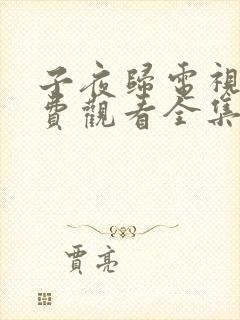 子夜歸電視
費觀看全集
賈亮